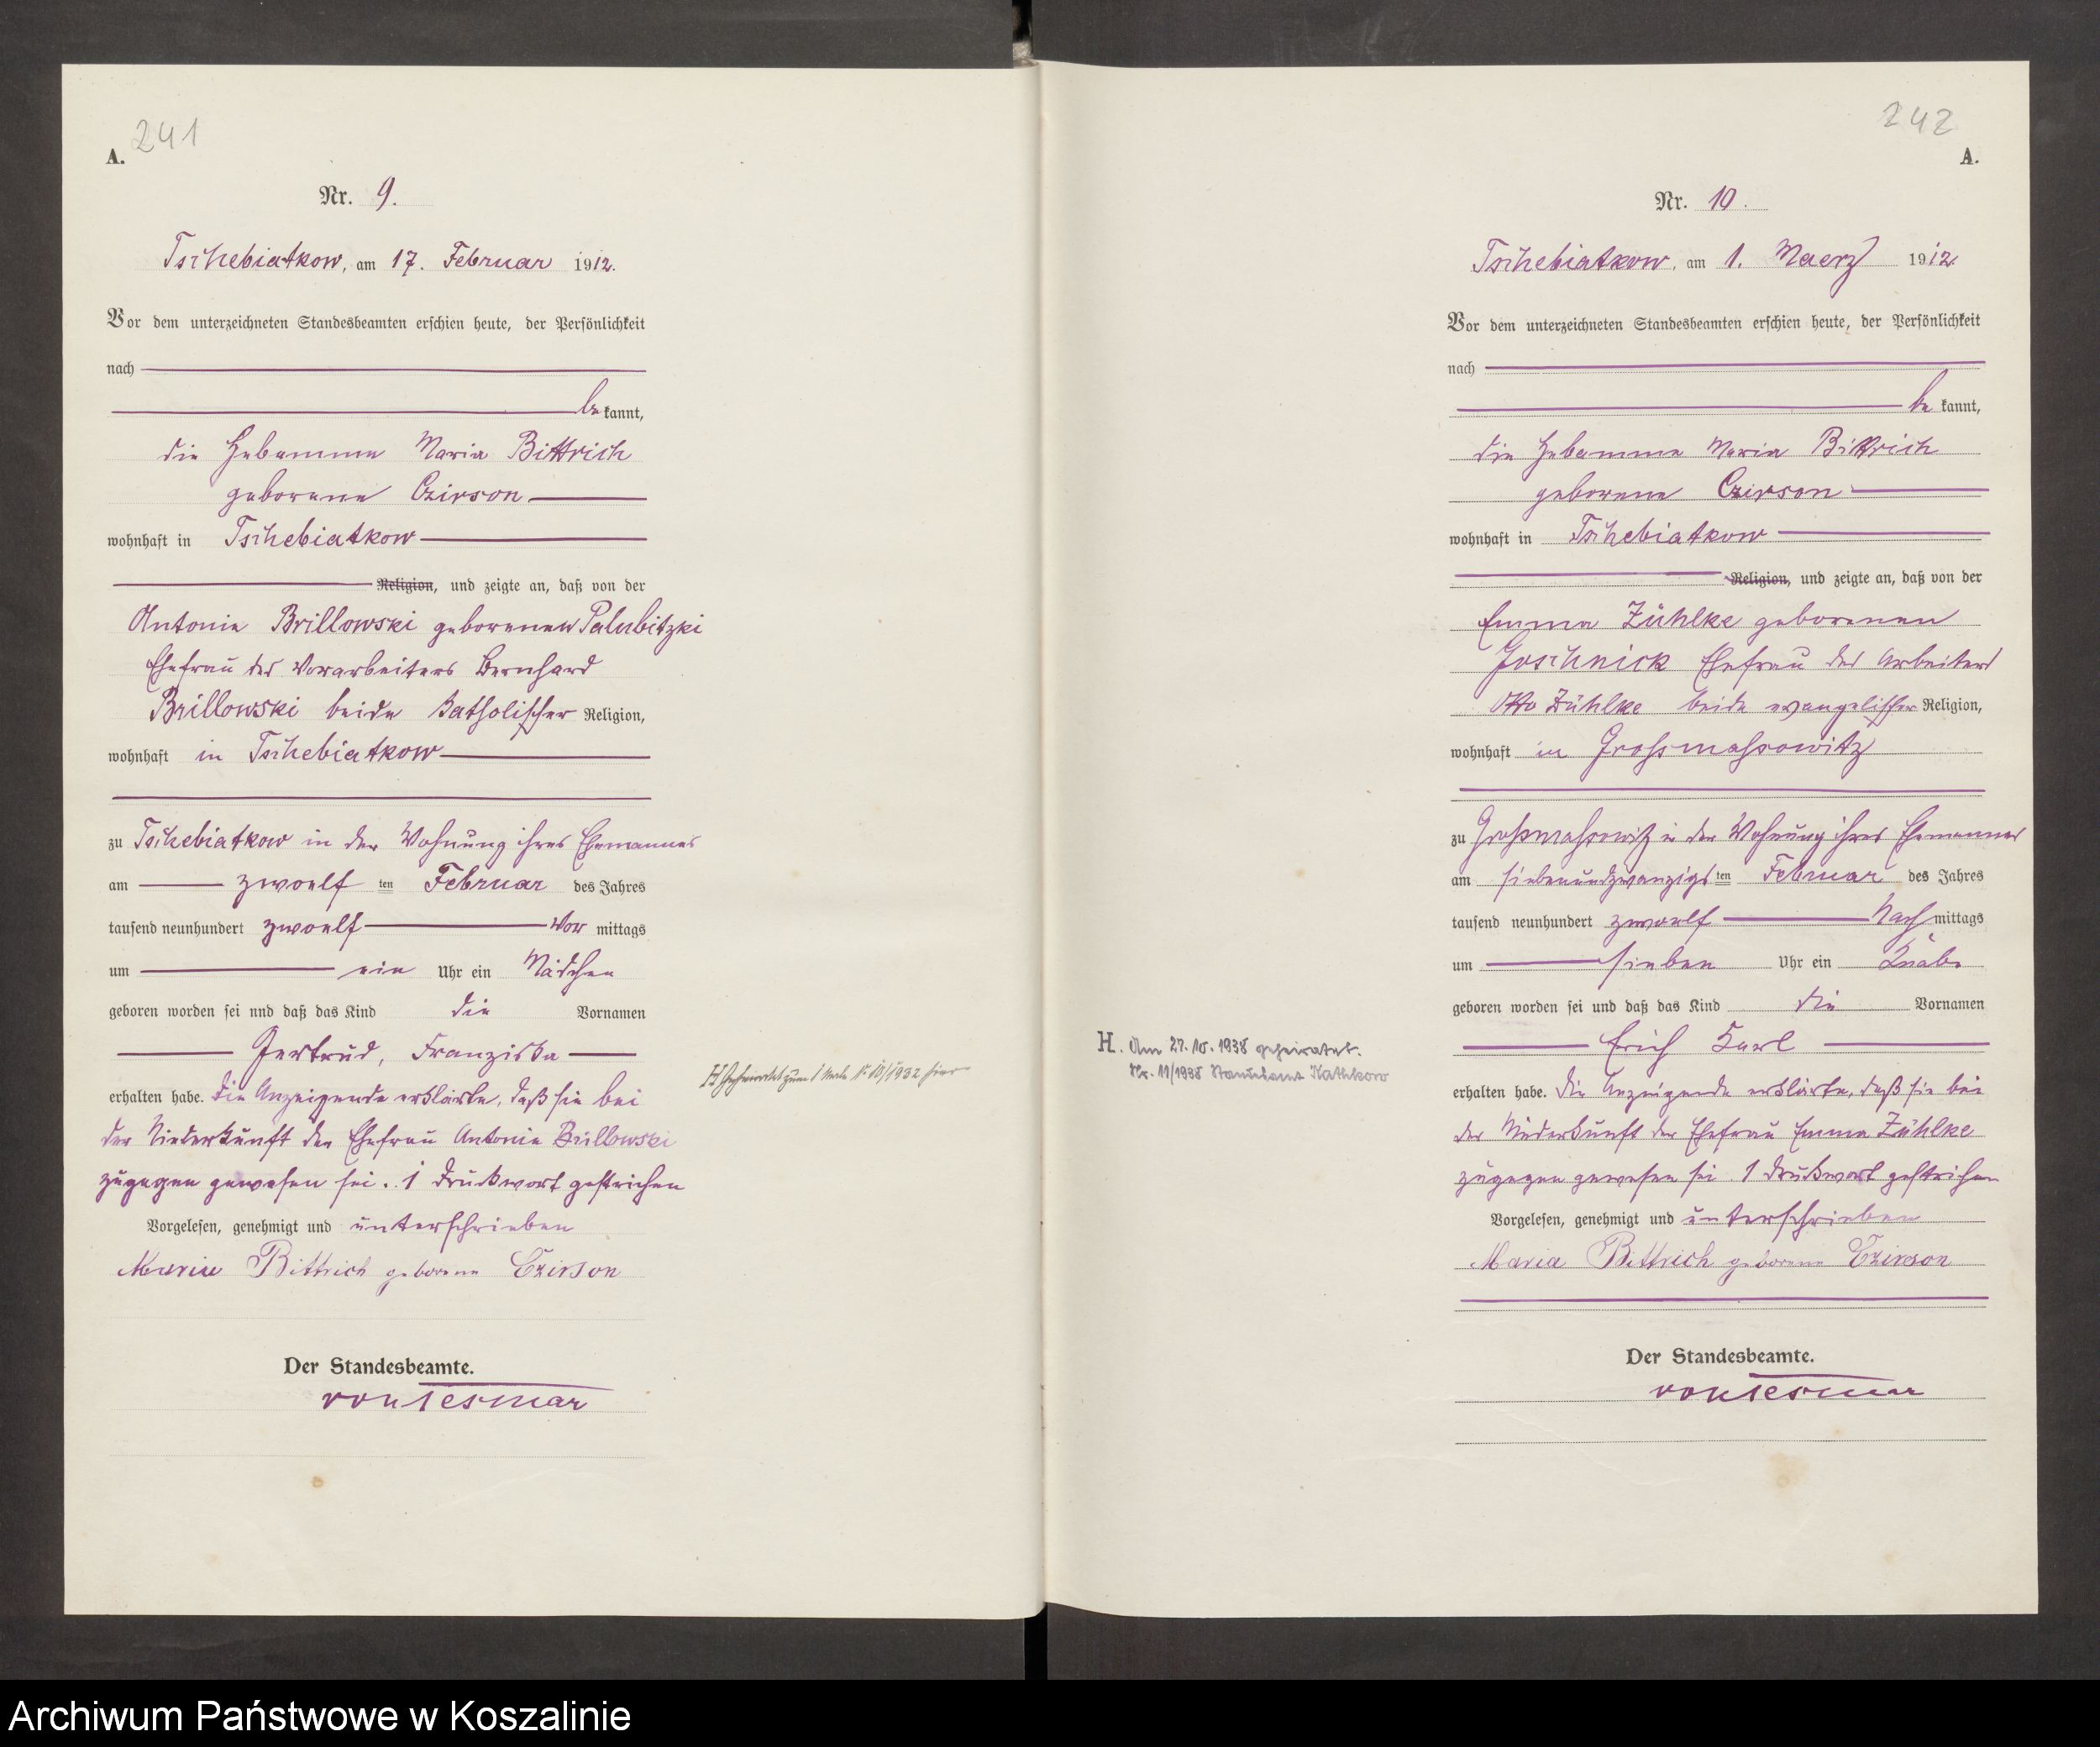 241
A.
Nr. 9.
Tschebiatkow, am 17. Februar 1912.
Vor dem unterzeichneten Standesbeamten erschien heute, der Persönlichkeit
nach
be kannt,
die Hebamme Maria Bittrich
geborene Czirson
wohnhaft in Tschebiatkow
Religion, und zeigte an, daß von der
Antonie Brillowski geborenen Palubitzki
Ehefrau des Vorarbeiters Bernhard
Brillowski beide katholischer Religion,
wohnhaft in Tschebiatkow
zu Tschebiatkow in der Wohnung ihres Ehemannes
am zwoelf ten Februar des Jahres
tausend neunhundert zwoelf Vor mittags
um ein Uhr ein Mädchen
geboren worden sei nnd daß das Kind die Vornamen
Gertrud, Franziska
erhalten habe. Die Anzeigende erklärte, daß sie bei
der Niederkunft der Ehefrau Antonie Brillowski
zugegen gewesen sei. 1 Druckwort gestrichen
Vorgelesen, genehmigt und unterschrieben
Maria Bittrich geborene Czirson
Der Standesbeamte.
von Tesmar
H Geheiratet zum 1 Male Nr 10/1932 hier
242
A.
Nr. 10.
Tschebiatkow, am 1. Maerz 1912.
Vor dem unterzeichneten Standesbeamten erschien heute, der Persönlichkeit
nach
be kannt,
die Hebamme Maria Bittrich
geborene Czirson
wohnhaft in Tschebiatkow
Religion, und zeigte an, daß von der
Emma Zühlke geborenen
Joschnick Ehefrau des Arbeiters
Otto Zühlke beide evangelischer Religion,
wohnhaft in Grossmassowitz
zu Grossmassowitz in der Wohnung ihres Ehemannes
am siebenundzwanzigs ten Februar des Jahres
tausend neunhundert zwoelf Nach mittags
um sieben Uhr ein Knabe
geboren worden sei und daß das Kind die Vornamen
Erich Karl
erhalten habe. Die Anzeigende erklärte, daß sie bei
der Niederkunft der Ehefrau Emma Zühlke
zugegen gewesen sei. 1 Druckwort gestrichen
Vorgelesen, genehmigt und unterschrieben
Maria Bittrich geborene Czirson
Der Standesbeamte.
von Tesmar
H. Am 27.10.1938 geheiratet.
Nr. 11/1938 Standesamt Kathkow
Archiwum Państwowe w Koszalinie